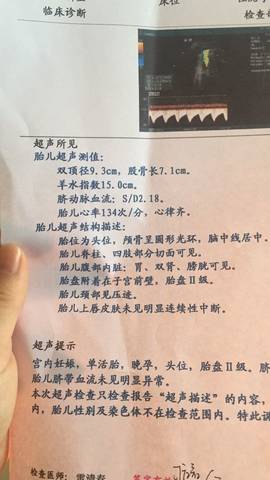 临床诊断
床位
检查
超声所见
胎儿超声测值:
双顶径9.3cm,股骨长7.1cm。
羊水指数15.0cm。
脐动脉血流: S/D2.18。
胎儿心率134次/分,心律齐。
胎儿超声结构描述:
胎位为头位,颅骨呈圆形光环,脑中线居中。
胎儿脊柱、四肢部分切面可见。
胎儿腹部内脏: 胃、双肾、膀胱可见。
胎盘附着在子宫前壁,胎盘Ⅱ级。
胎儿颈部见压迹。
胎儿上唇皮肤未见明显连续性中断。
超声提示
宫内妊娠,单活胎,晚孕,头位,胎盘Ⅱ级。脐
胎儿脐带血流未见明显异常。
本次超声检查只检查报告“超声描述”的内容,
内,胎儿性别及染色体不在检查范围内。特此
检查医师: